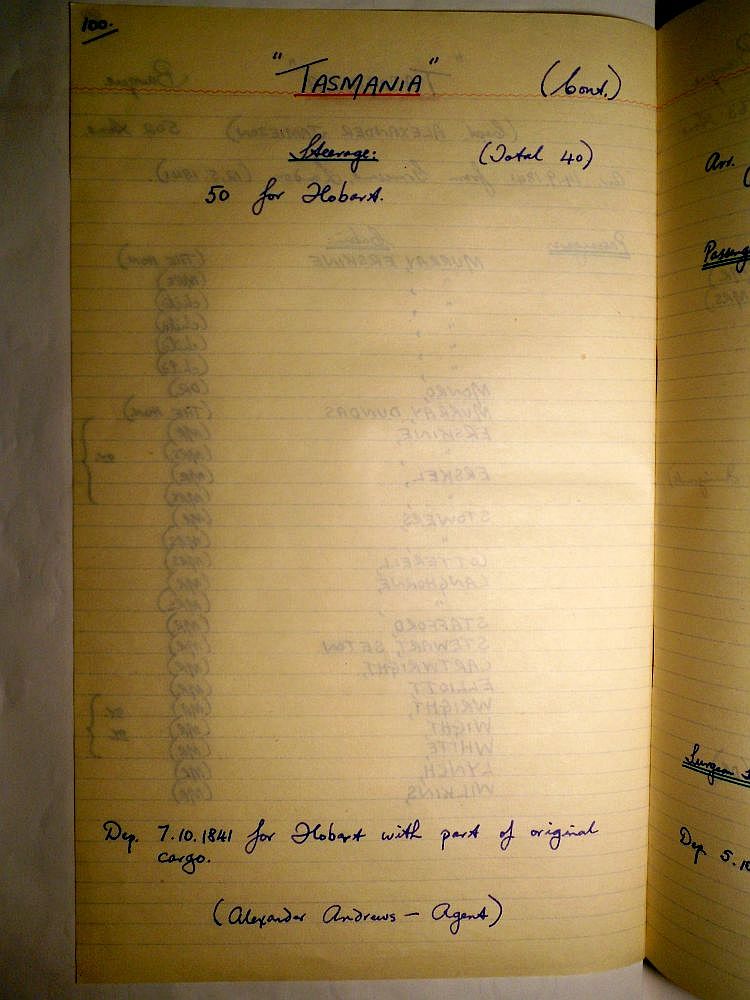 100.
"TASMANIA" (Cont.)
Steerage: (Total 40)
50 for Hobart.
Dep. 7.10.1841 for Hobart with part of original
cargo.
(Alexander Andrews — Agent)
Arr.
Passeng
Surgeon
Dep 5.10